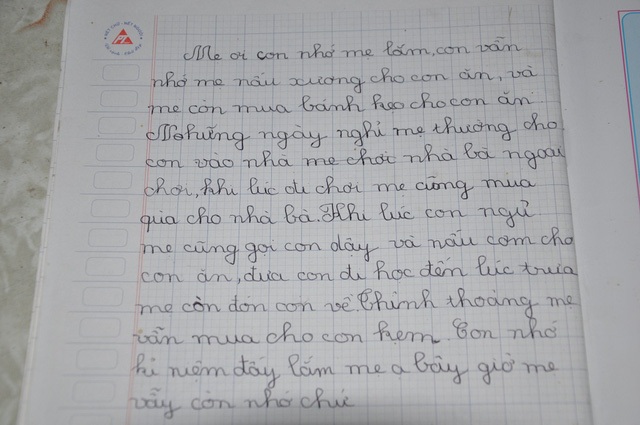 Mẹ ơi con nhớ mẹ lắm, con vẫn
nhớ mẹ nấu xương cho con ăn, và
mẹ còn mua bánh kẹo cho con ăn
Những ngày nghỉ mẹ thường cho
con vào nhà mẹ chơi nhà bà ngoại
chơi, khi lúc đi chơi mẹ cũng mua
qùa cho nhà bà. Khi lúc con ngủ
mẹ cũng gọi con dậy và nấu cơm cho
con ăn, đưa con đi học đến lúc trưa
mẹ còn đón con về. Thỉnh thoảng mẹ
vẫn mua cho con kem. Con nhớ
kỉ niệm đấy lắm mẹ ạ bây giờ mẹ
vẫy còn nhớ chứ